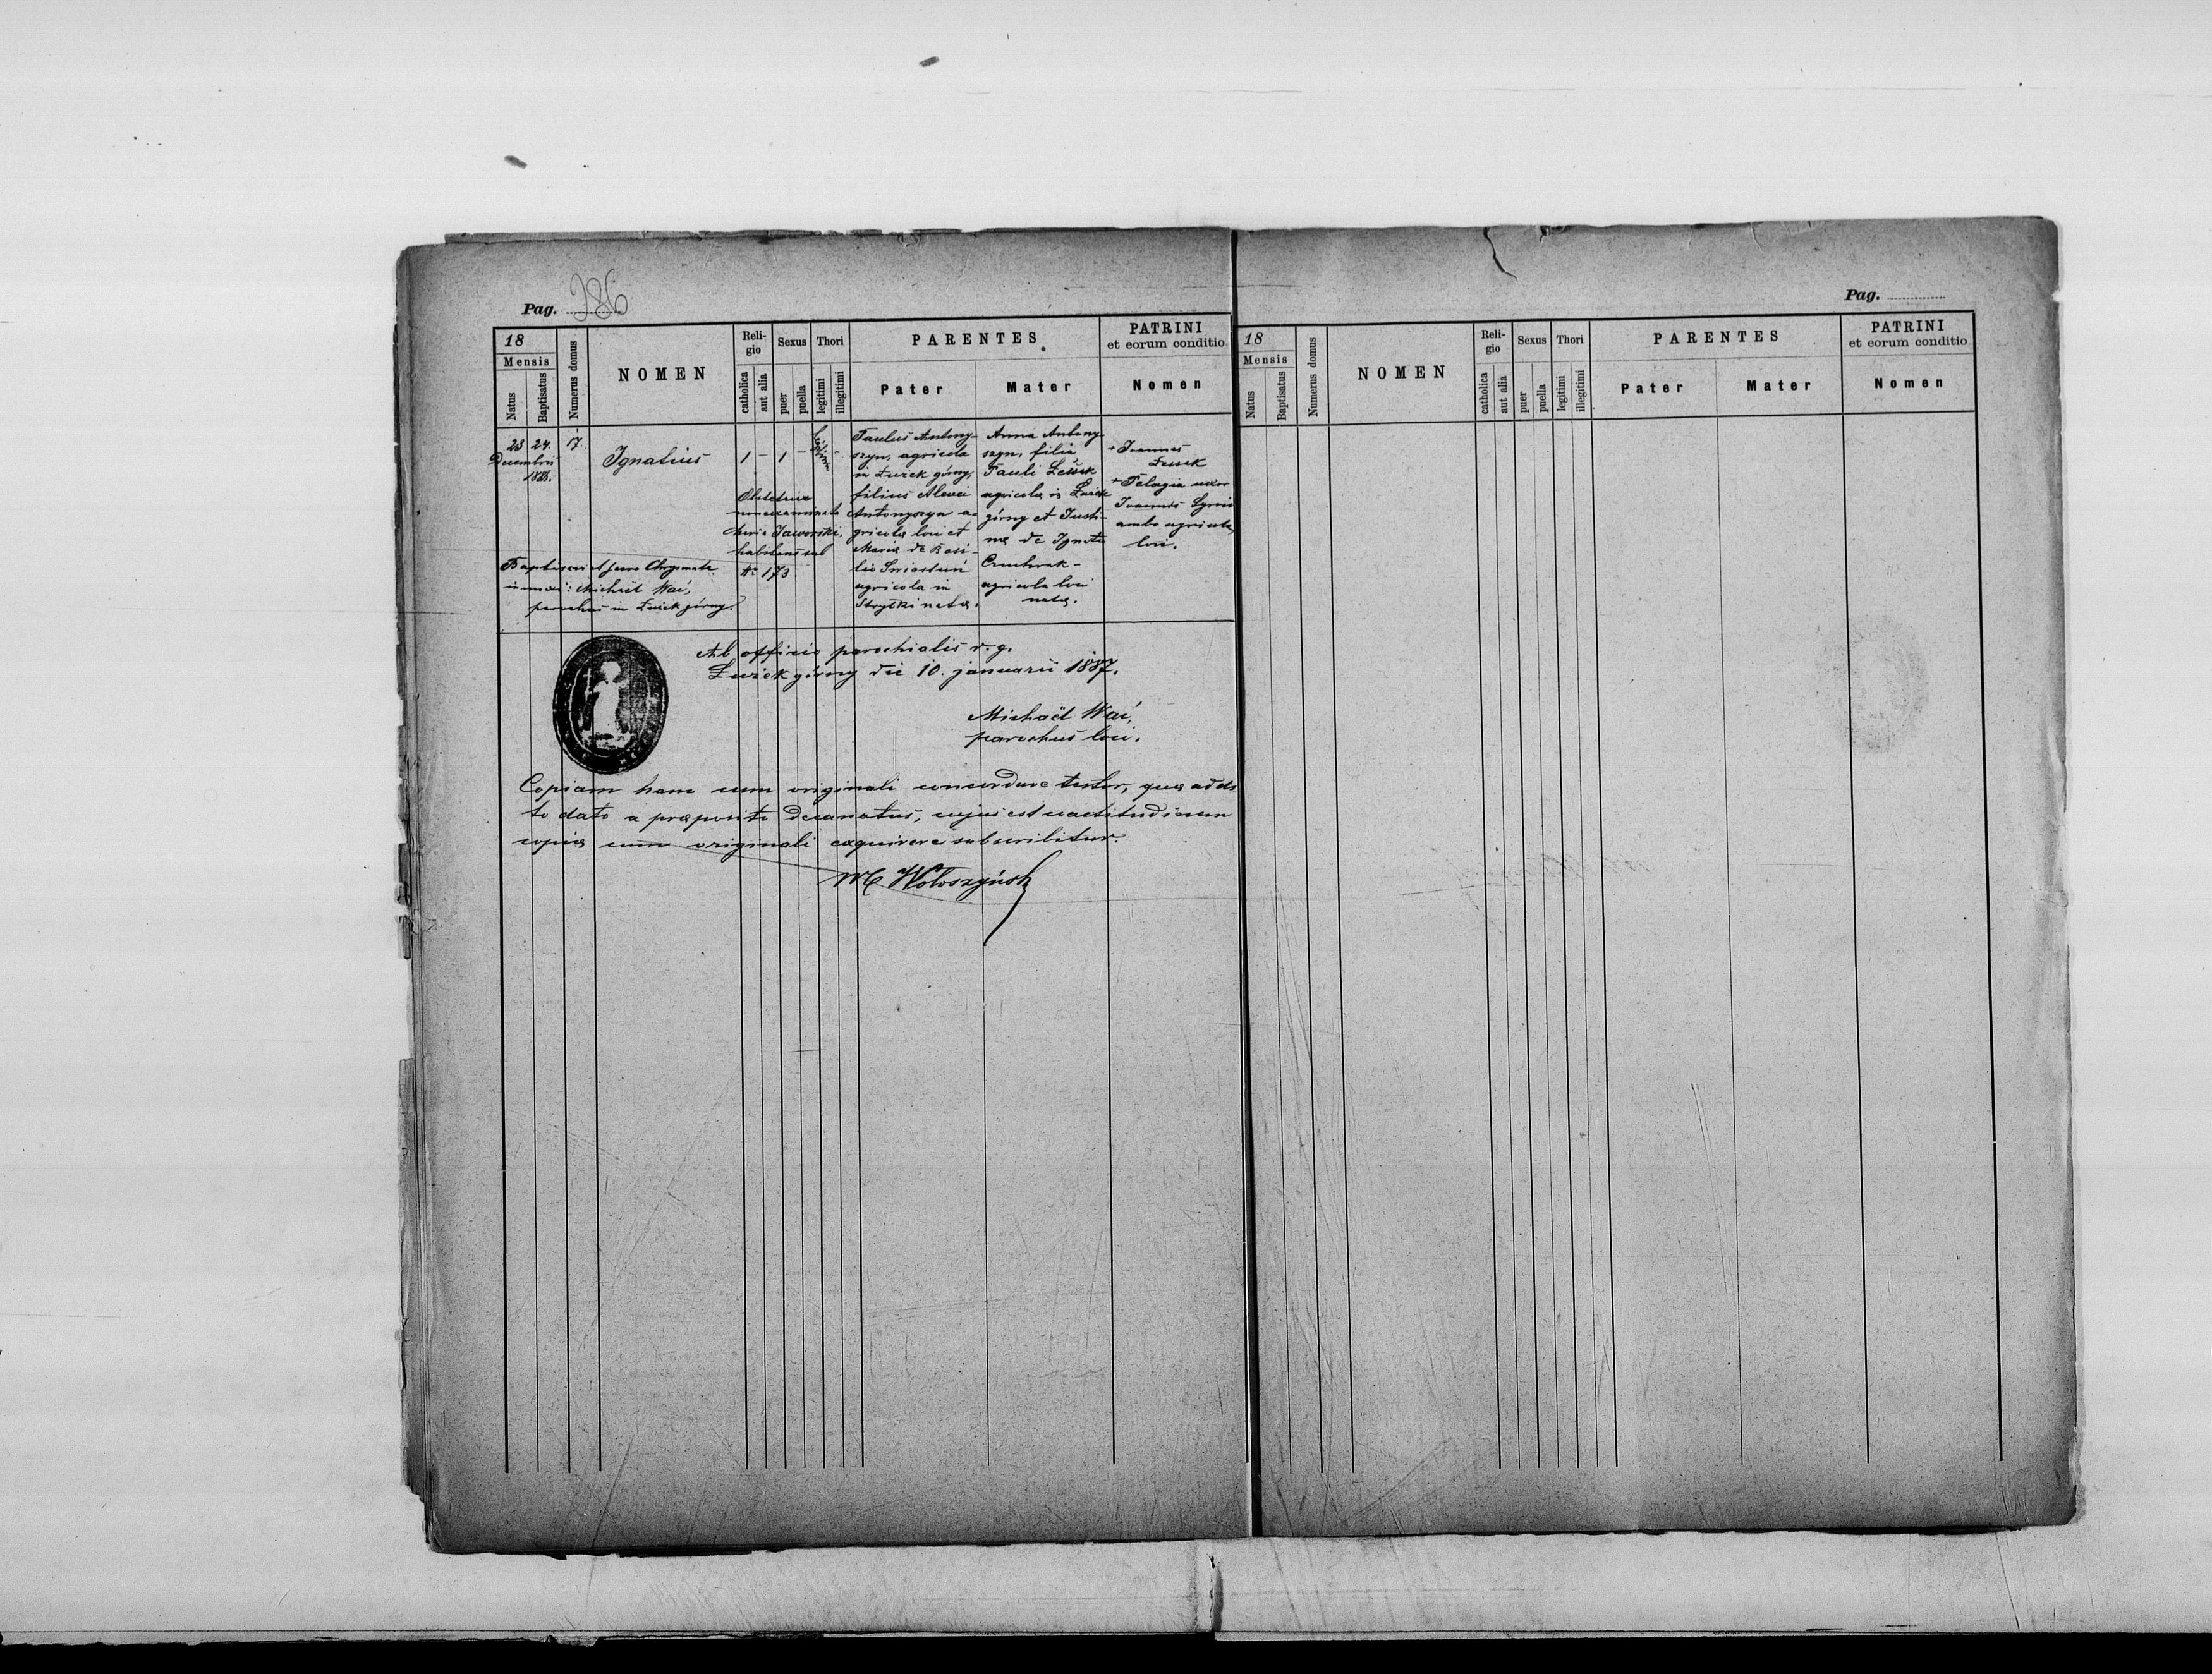 Pag. 386
18
Mensis
Natus
Baptisatus
Numerus domus
NOMEN
Reli-
gio
catholica
aut alia
Sexus
puer
puella
Thori
legitimi
illegitimi
PARENTES
Pater
Mater
PATRINI
et eorum conditio
Nomen
23 24.
Decembris
17.
Ignatius
1 - 1 -
Obstetrix
Jaworski,
habitans sub
Nr 173
Paulus Antony-
szyn, agricola
in Łużek górny,
filius Alexii
Antonyszyn a-
gricolæ loci et
Mariæ de Basi-
lio
agricola in
Strzyłki natæ.
Anna Antony-
szyn, filia
Pauli Łessek
agricolæ in Łużek
górny et Justi-
næ de Ignatio
agricola loci
natæ.
+ Joannes
Łessek
+ Pelagia uxor
Joannis
ambo agricolæ
loci.
Baptisavi et sacro Chrysmate
Michael Wać,
parochus in Łużek górny.
Ab officio parochialis r. g.
Łużek górny die 10. januarii 1887.
Michaël Wać,
parochus loci.
Copiam hanc cum originali concordare testor, quæ ad
dato a præposito decanatus, cujus est exactitudinem
copiæ cum originali exquirere subscribitur.
Wołoszyńsk
Pag.
18
Mensis
Natus
Baptisatus
Numerus domus
NOMEN
Reli-
gio
catholica
aut alia
Sexus
puer
puella
Thori
legitimi
illegitimi
PARENTES
Pater
Mater
PATRINI
et eorum conditio
Nomen